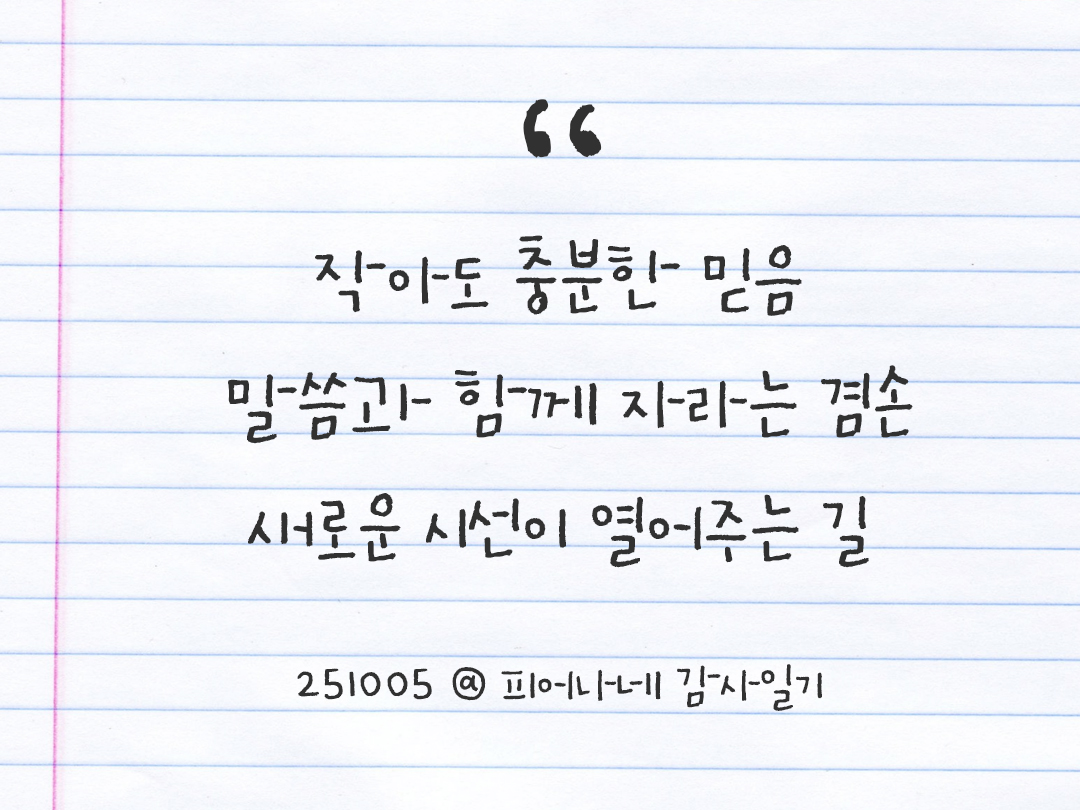 “
작아도 충분한 믿음
말씀과 함께 자라는 겸손
새로운 시선이 열어주는 길
251005 @ 피어나네 감사일기